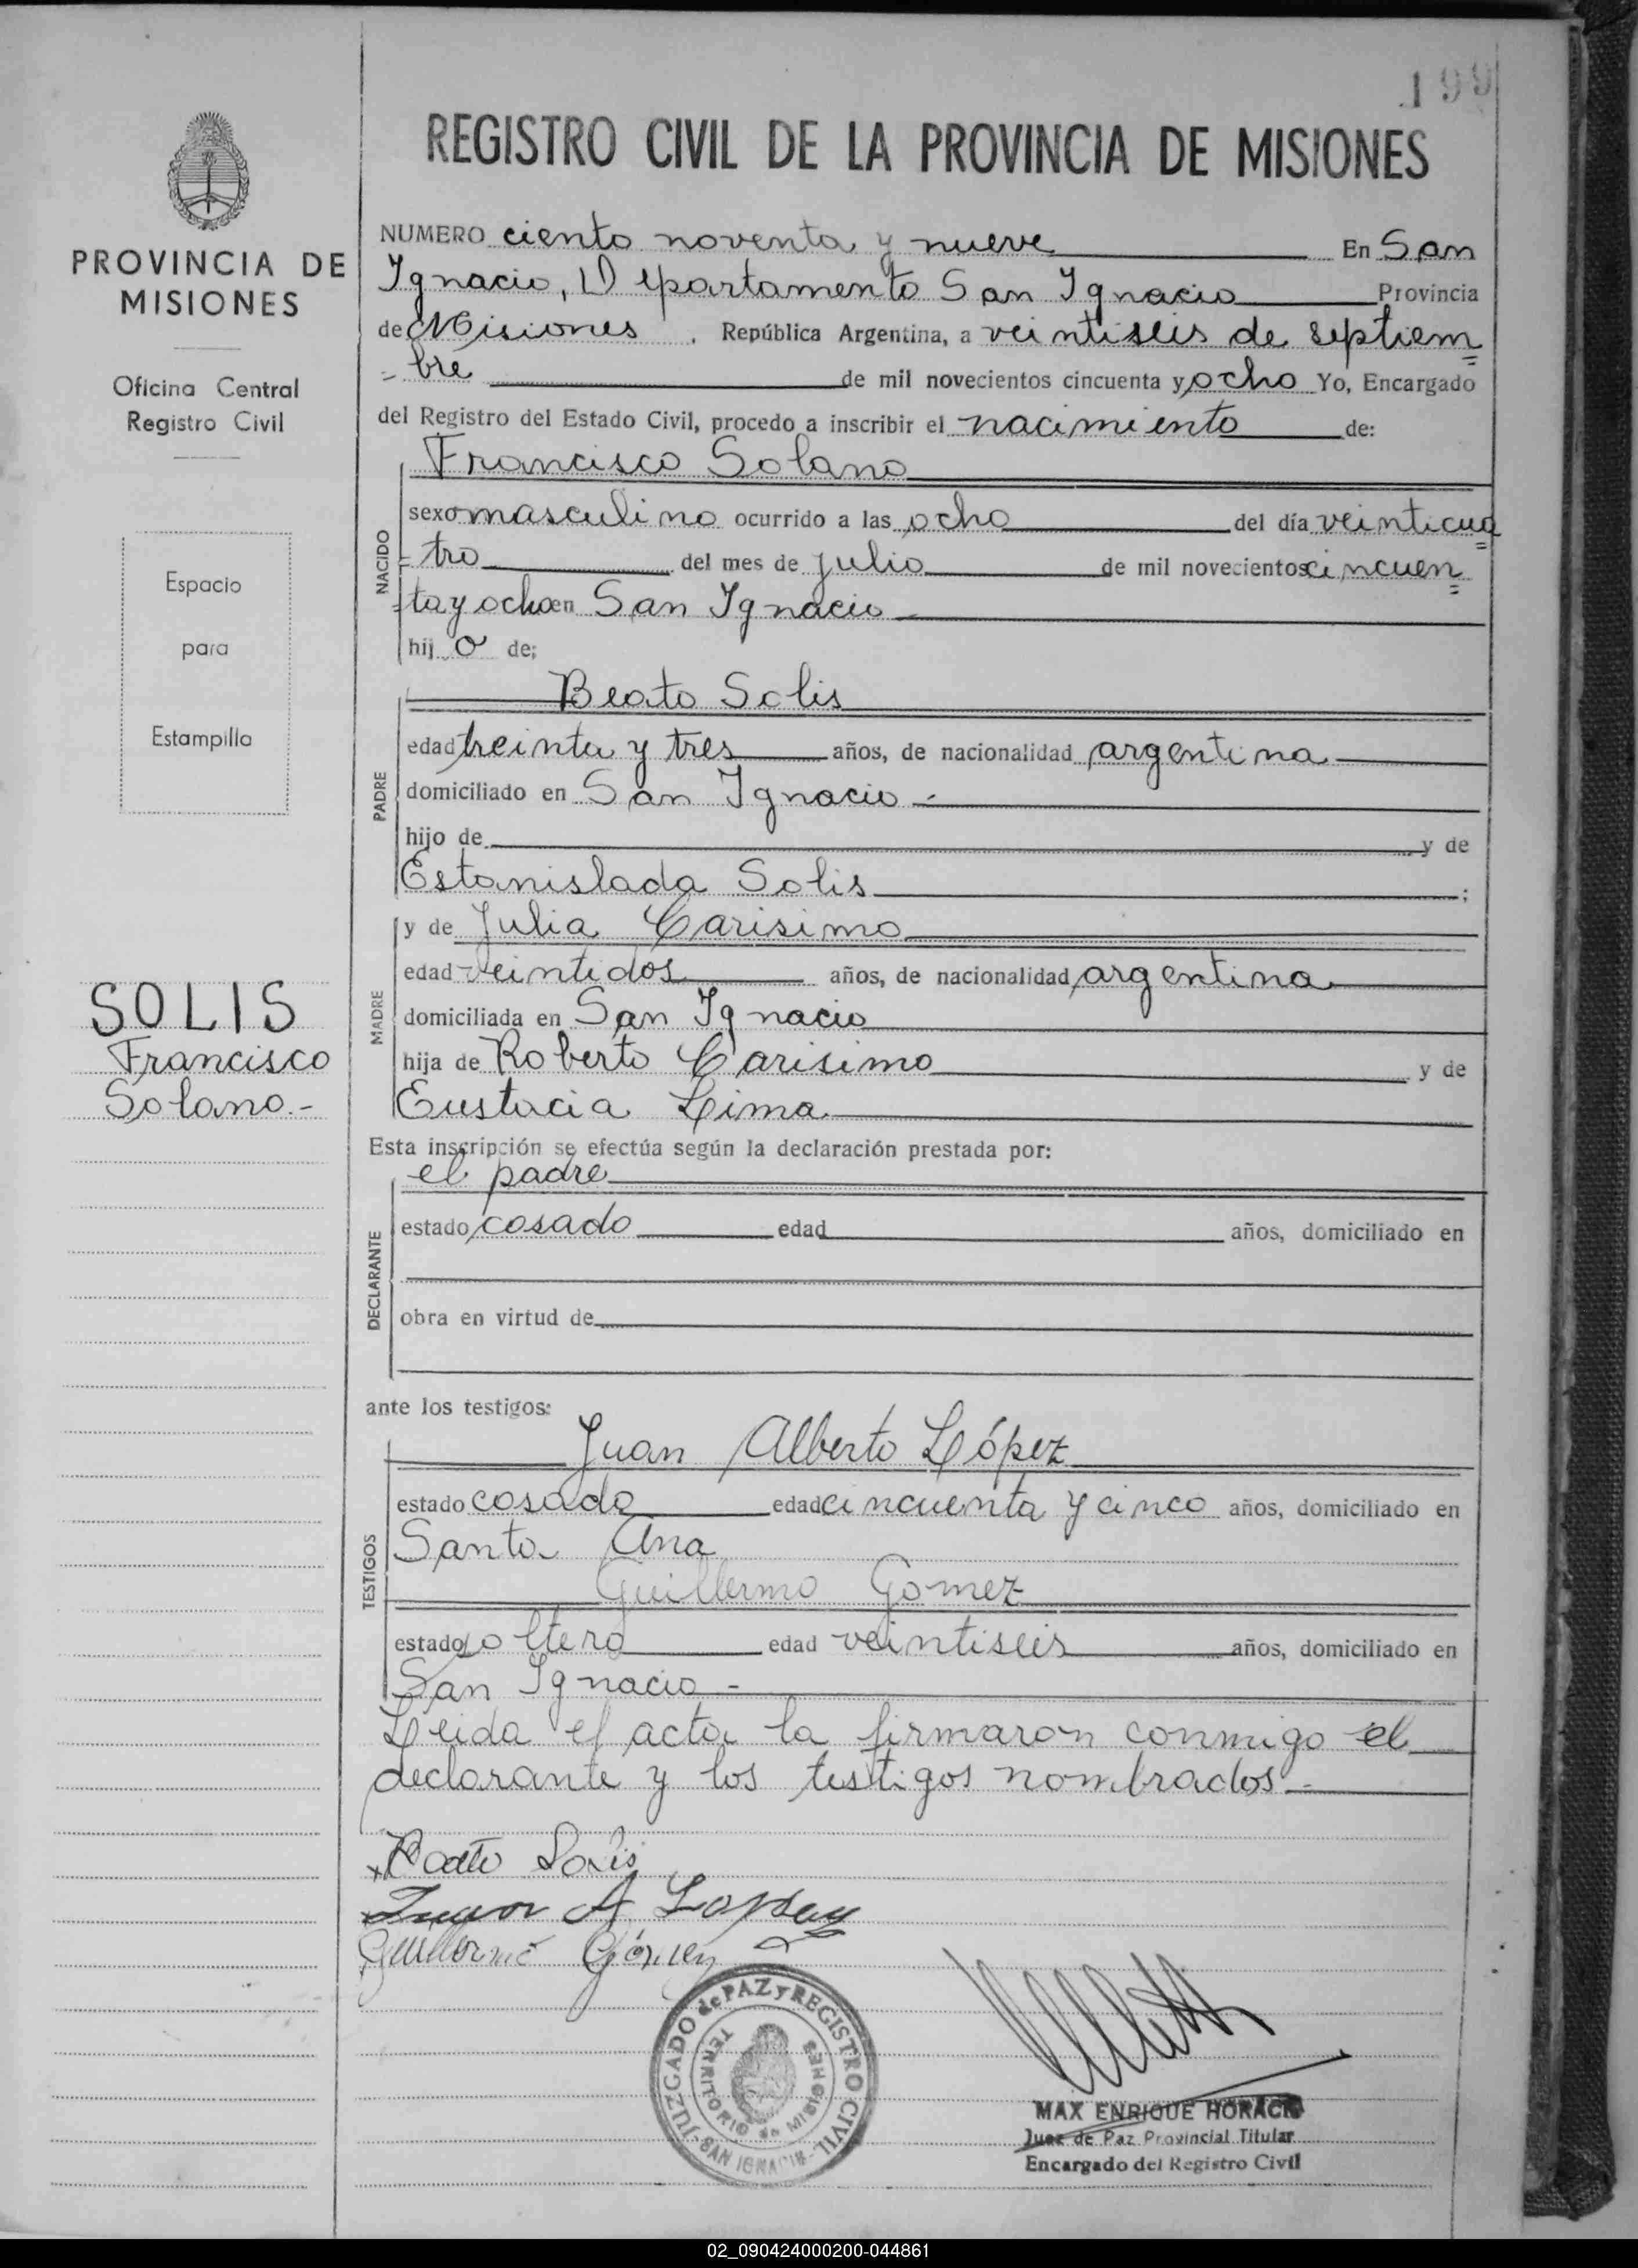 199
REGISTRO CIVIL DE LA PROVINCIA DE MISIONES
PROVINCIA DE
MISIONES
Oficina Central
Registro Civil
Espacio
para
Estampilla
SOLIS
Francisco
Solano.-
NUMERO ciento noventa y nueve En San
Ignacio, Departamento San Ignacio Provincia
de Misiones. República Argentina, a veintiseis de septiem=
=bre de mil novecientos cincuenta y ocho Yo, Encargado
del Registro del Estado Civil, procedo a inscribir el nacimiento de:
NACIDO
Francisco Solano
sexo masculino ocurrido a las ocho del día veinticua=
=tro del mes de julio de mil novecientos cincuen=
=ta y ocho en San Ignacio
hijo de;
PADRE
Beato Solis
edad treinta y tres años, de nacionalidad argentina
domiciliado en San Ignacio -
hijo de y de
Estanislada Solis ;
MADRE
y de Julia Carisimo
edad veintidos años, de nacionalidad argentina
domiciliada en San Ignacio
hija de Roberto Carisimo y de
Eustacia Lima
Esta inscripción se efectúa según la declaración prestada por:
DECLARANTE
el padre
estado casado edad años, domiciliado en
obra en virtud de
ante los testigos:
TESTIGOS
Juan Alberto López
estado casado edad cincuenta y cinco años, domiciliado en
Santa Ana
Guillermo Gomez
estado soltero edad veintiseis años, domiciliado en
San Ignacio -
Leida el acta la firmaron conmigo el
declarante y los testigos nombrados.-
Beato Solis
Juan A. Lopez
Guillermo Gómez
JUZGADO de PAZ y REGISTRO CIVIL
TERRITORIO de MISIONES
SAN IGNACIO
MAX ENRIQUE HORACIO
Juez de Paz Provincial Titular
Encargado del Registro Civil
02_090424000200-044861